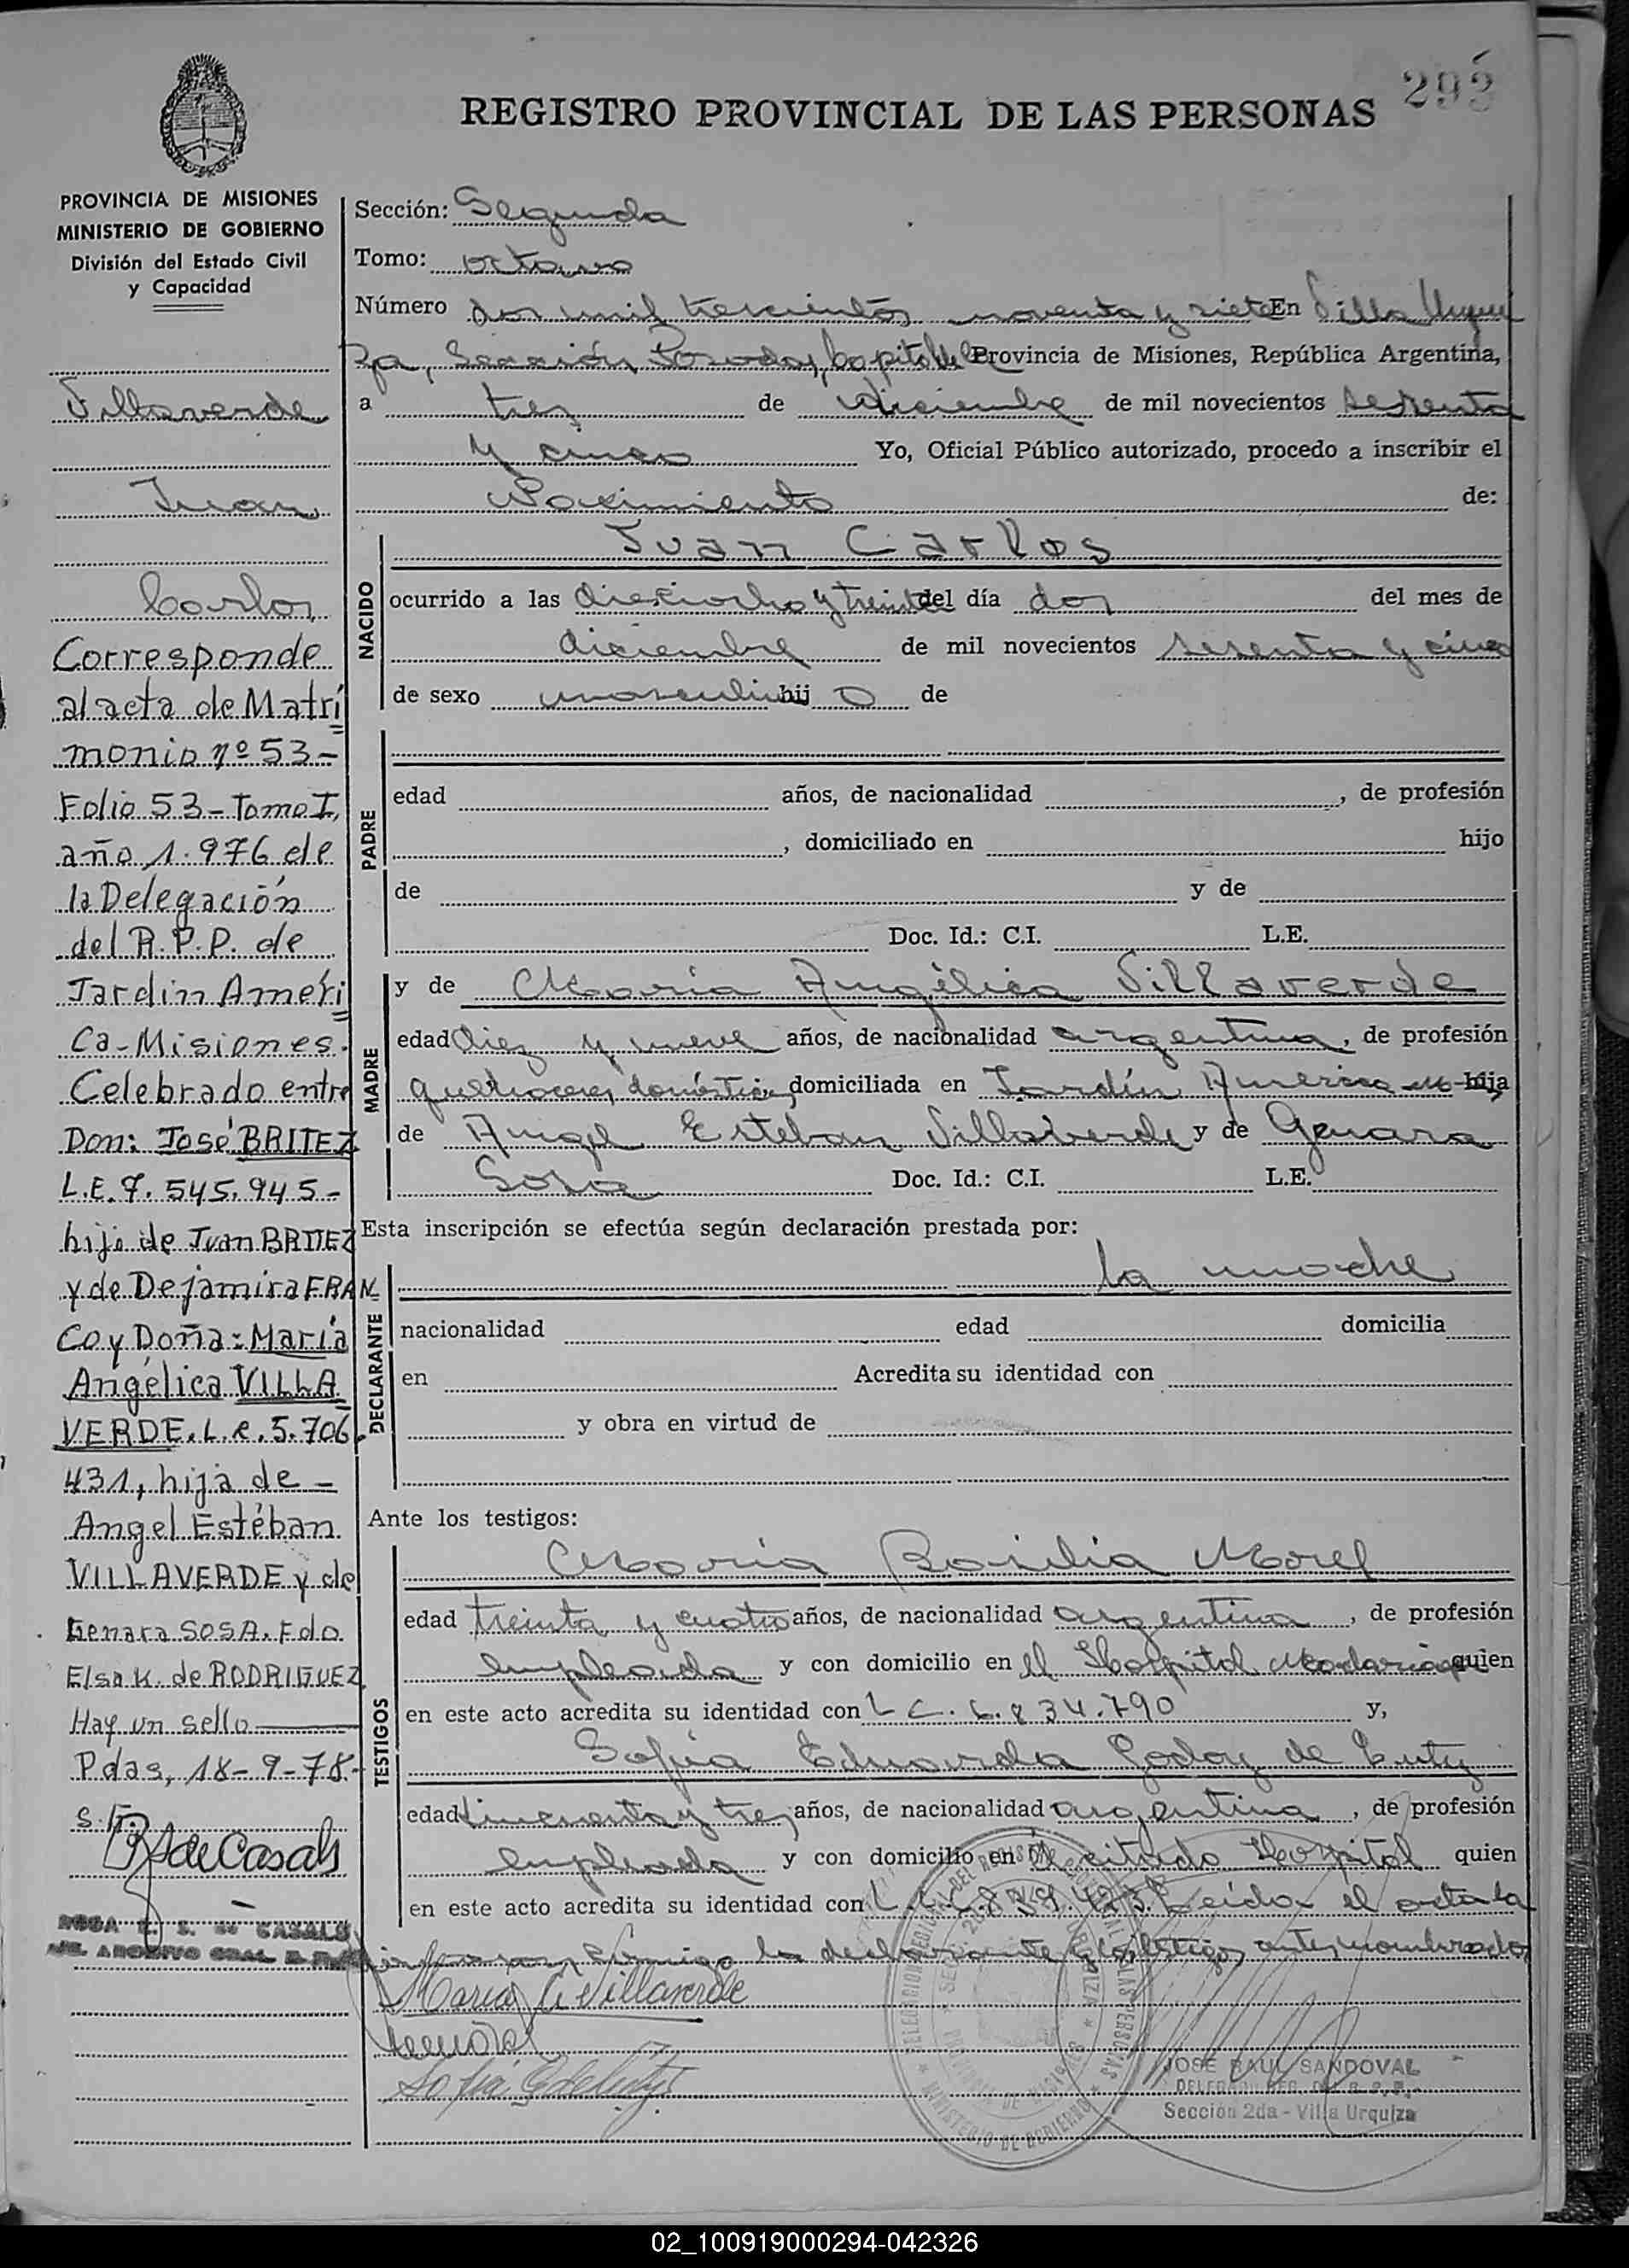 293
REGISTRO PROVINCIAL DE LAS PERSONAS
PROVINCIA DE MISIONES
MINISTERIO DE GOBIERNO
División del Estado Civil
y Capacidad
Villaverde
Juan
Carlos
Corresponde
al acta de Matri
monio nº 53-
Folio 53-Tomo I,
año 1.976 de
la Delegación
del R.P.P. de
Jardin Améri
ca-Misiones.
Celebrado entre
Don: José BRITEZ
L.E. 7.545.945-
hijo de Juan BRITEZ
y de Dejamira FRAN
CO y Doña: María
Angélica VILLA
VERDE. L.C. 5.706.
431, hija de -
Angel Estéban
VILLAVERDE y de
Genara SOSA. Fdo
Elsa K. de RODRIGUEZ
Hay un sello
Pdas, 18-9-78.-
ROSA E. S. de CASALS
Sección: Segunda
Tomo: octavo
Número dos mil trescientos noventa y siete En Villa Urqui
za, Sección Posadas, Capital de Provincia de Misiones, República Argentina,
a tres de diciembre de mil novecientos sesenta
y cinco Yo, Oficial Público autorizado, procedo a inscribir el
Nacimiento de:
NACIDO
Juan Carlos
ocurrido a las dieciocho y treinta del día dos del mes de
diciembre de mil novecientos sesenta y cinco
de sexo masculino hijo de
PADRE
edad años, de nacionalidad , de profesión
, domiciliado en hijo
de y de
Doc. Id.: C.I. L.E.
MADRE
y de María Angélica Villaverde
edad diez y nueve años, de nacionalidad argentina, de profesión
quehaceres domésticos, domiciliada en Jardín America hija
de Angel Esteban Villaverde y de Genara
Sosa Doc. Id.: C.I. L.E.
Esta inscripción se efectúa según declaración prestada por:
DECLARANTE
la madre
nacionalidad edad domicilia
en Acredita su identidad con
y obra en virtud de
Ante los testigos:
TESTIGOS
María Basilia Morel
edad treinta y cuatro años, de nacionalidad argentina, de profesión
empleada y con domicilio en el Hospital Madariaga quien
en este acto acredita su identidad con L C. 6.834.790 y,
Sofia Eduarda Godoy de
edad cincuenta y tres años, de nacionalidad argentina, de profesión
empleada y con domicilio en el citado Hospital quien
en este acto acredita su identidad con Leída el acta la
firman conmigo la declarante y los testigos antes nombrados
Maria A Villaverde
JOSE RAUL SANDOVAL
Sección 2da - Villa Urquiza
02_100919000294-042326